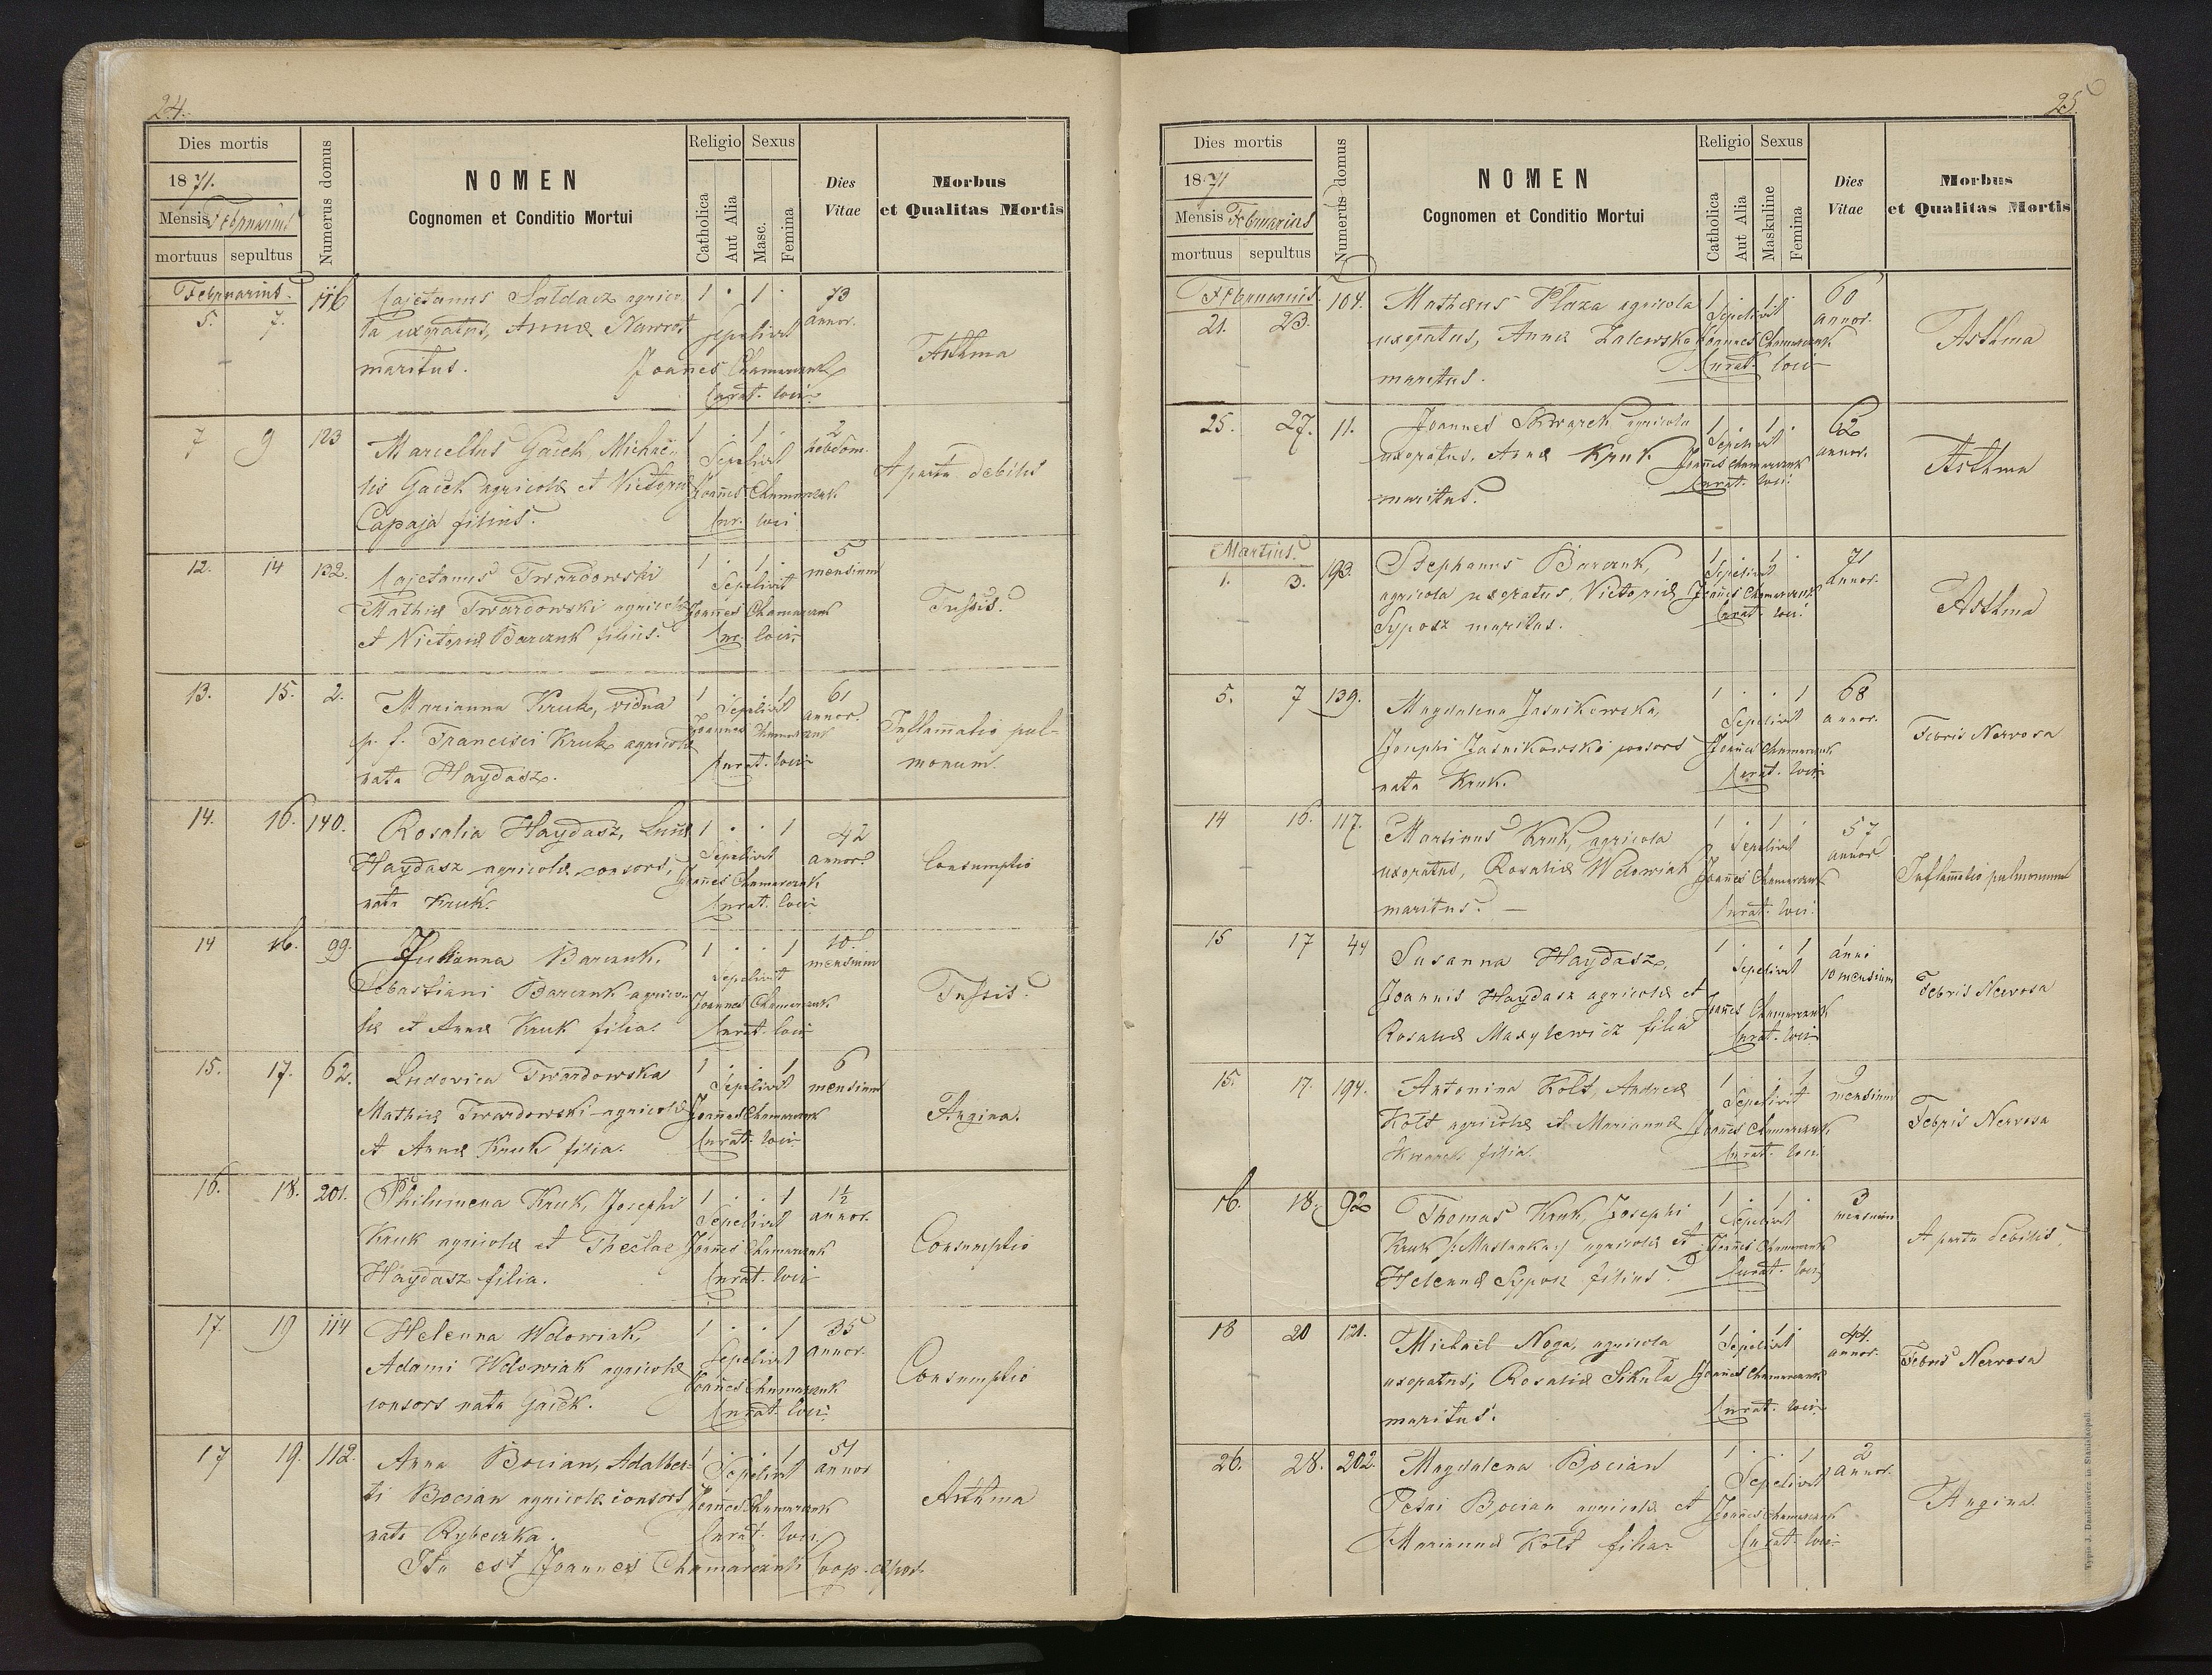 24.
Dies mortis
1871.
Mensis Februarius
mortuus sepultus
Numerus domus
NOMEN
Cognomen et Conditio Mortui
Religio
Catholica
Aut Alia
Sexus
Masc.
Femina
Dies
Vitae
Morbus
et Qualitas Mortis
Februarius.
5. 7. 116 Cajetanus Sałdacz agrico- 1 · 1 · 73
la uxoratus, Annæ Nawrot Sepelivit annor.
maritus. Joannes Chamarczuk Asthma
Curat. loci
7 9 123 Marcellus Gacek, Michaë- 1 · 1 · 2
lis Gacek agricolæ et Victoriæ Sepelivit hebdom.
Capaja filius. Joannes Chamarczuk A partu debilis
Cur. loci
12. 14 132. Cajetanus Twardowski 1 · 1 · 5
Mathiæ Twardowski agricolæ Sepelivit mensium
et Victoriæ Barczuk filius. Joannes Chamarczuk Tussis.
Cur. loci
13. 15. 2. Marianna Kruk, vidua 1 · · 1 61
p. d. Francisci Kruk agricolæ Sepelivit annor.
nata Haydasz. Joannes Chamarczuk Inflamatio pul-
Curat. loci monum.
14. 16. 140. Rosalia Haydasz, Lucæ 1 · · 1 42
Haydasz agricolæ consors, Sepelivit annor.
nata Kruk. Joannes Chamarczuk Consumptio
Curat. loci
14 16. 99. Julianna Barczuk, 1 · · 1 10.
Sebastiani Barczuk agrico- Sepelivit mensium
læ et Annæ Kruk filia. Joannes Chamarczuk Tussis.
Curat. loci
15. 17. 62. Ludovica Twardowska 1 · · 1 6
Mathiæ Twardowski agricolæ Sepelivit mensium
et Annæ Kruk filia. Joannes Chamarczuk Angina.
Curat. loci
16. 18. 201. Philumena Kruk, Josephi 1 · · 1 1½
Kruk agricolæ et Theclae Sepelivit annor.
Haydasz filia. Joannes Chamarczuk Consumptio
Curat. loci
17. 19 114 Helenna Wdowiak, 1 · · 1 35
Adami Wdowiak agricolæ Sepelivit annor.
consors nata Gacek. Joannes Chamarczuk Consumptio
Curat. loci
17 19. 112. Anna Bocian, Adalber- 1 · · 1 51
ti Bocian agricolæ consors Sepelivit annor
nata Rybeczka. Joannes Chamarczuk Asthma
Curat. loci
Ita est Joannes Chamarczuk Coop. expos.
25.
Dies mortis
1871
Mensis Februarius
mortuus sepultus
Numerus domus
NOMEN
Cognomen et Conditio Mortui
Religio
Catholica
Aut Alia
Sexus
Maskuline
Femina
Dies
Vitae
Morbus
et Qualitas Mortis
Februarius.
21. 23. 104. Mathæus Płaza agricola 1 60
uxoratus, Annæ Zalewska Sepelivit annor.
maritus. Joannes Chamarczuk Asthma
Curat. loci
25. 27. 11. Joannes Skwarek agricola 1 · 1 · 62
uxoratus, Annæ Kruk Sepelivit annor.
maritus. Joannes Chamarczuk Asthma
Curat. loci.
Martius.
1. 3. 193. Stephanus Barczuk, 1 1 · 71
agricola uxoratus, Victoriæ Sepelivit annor.
Syposz maritus. Joannes Chamarczuk Asthma
Curat. loci
5. 7 139. Magdalena Jasnikowska, 1 · · 1 68
Josephi Jasnikowski consors Sepelivit annor.
nata Kruk. Joannes Chamarczuk Febris Nervosa
Curat. loci
14 16. 117. Martinus Kruk, agricola 1 · 1 · 57
uxoratus, Rosaliæ Wdowiak Sepelivit annor
maritus. — Joannes Chamarczuk Inflamatio pulmonum
Curat. loci.
15 17 44 Susanna Haydasz, 1 · · 1 1 anni
Joannis Haydasz agricolæ et Sepelivit 10 mensium
Rosaliæ Masylewicz filia Joannes Chamarczuk Febris Nervosa
Curat. loci
15. 17. 194. Antonina Kołt, Andreæ 1 · · 1 9
Kołt agricolæ et Mariannæ Sepelivit mensium
Skwarek filia. Joannes Chamarczuk Febris Nervosa
Curat. loci
16. 18. 92 Thomas Kruk, Josephi 1 · 1 · 3
Kruk /:Maslanka:/ agricolæ et Sepelivit mensium
Helennæ Sypos filius. Joannes Chamarczuk A partu debilis
Curat. loci
18 20 121. Michaël Noga, agricola 1 · 1 · 44.
uxoratus, Rosaliæ Sikuła Sepelivit annor.
maritus. Joannes Chamarczuk Febris Nervosa
Curat. loci
26. 28. 202. Magdalena Bocian 1 · · 1 2
Petri Bocian agricolæ et Sepelivit annor.
Mariannæ Kołt filia. Joannes Chamarczuk Angina.
Curat. loci
Typis J. Dankiewicz in Stanislaopoli